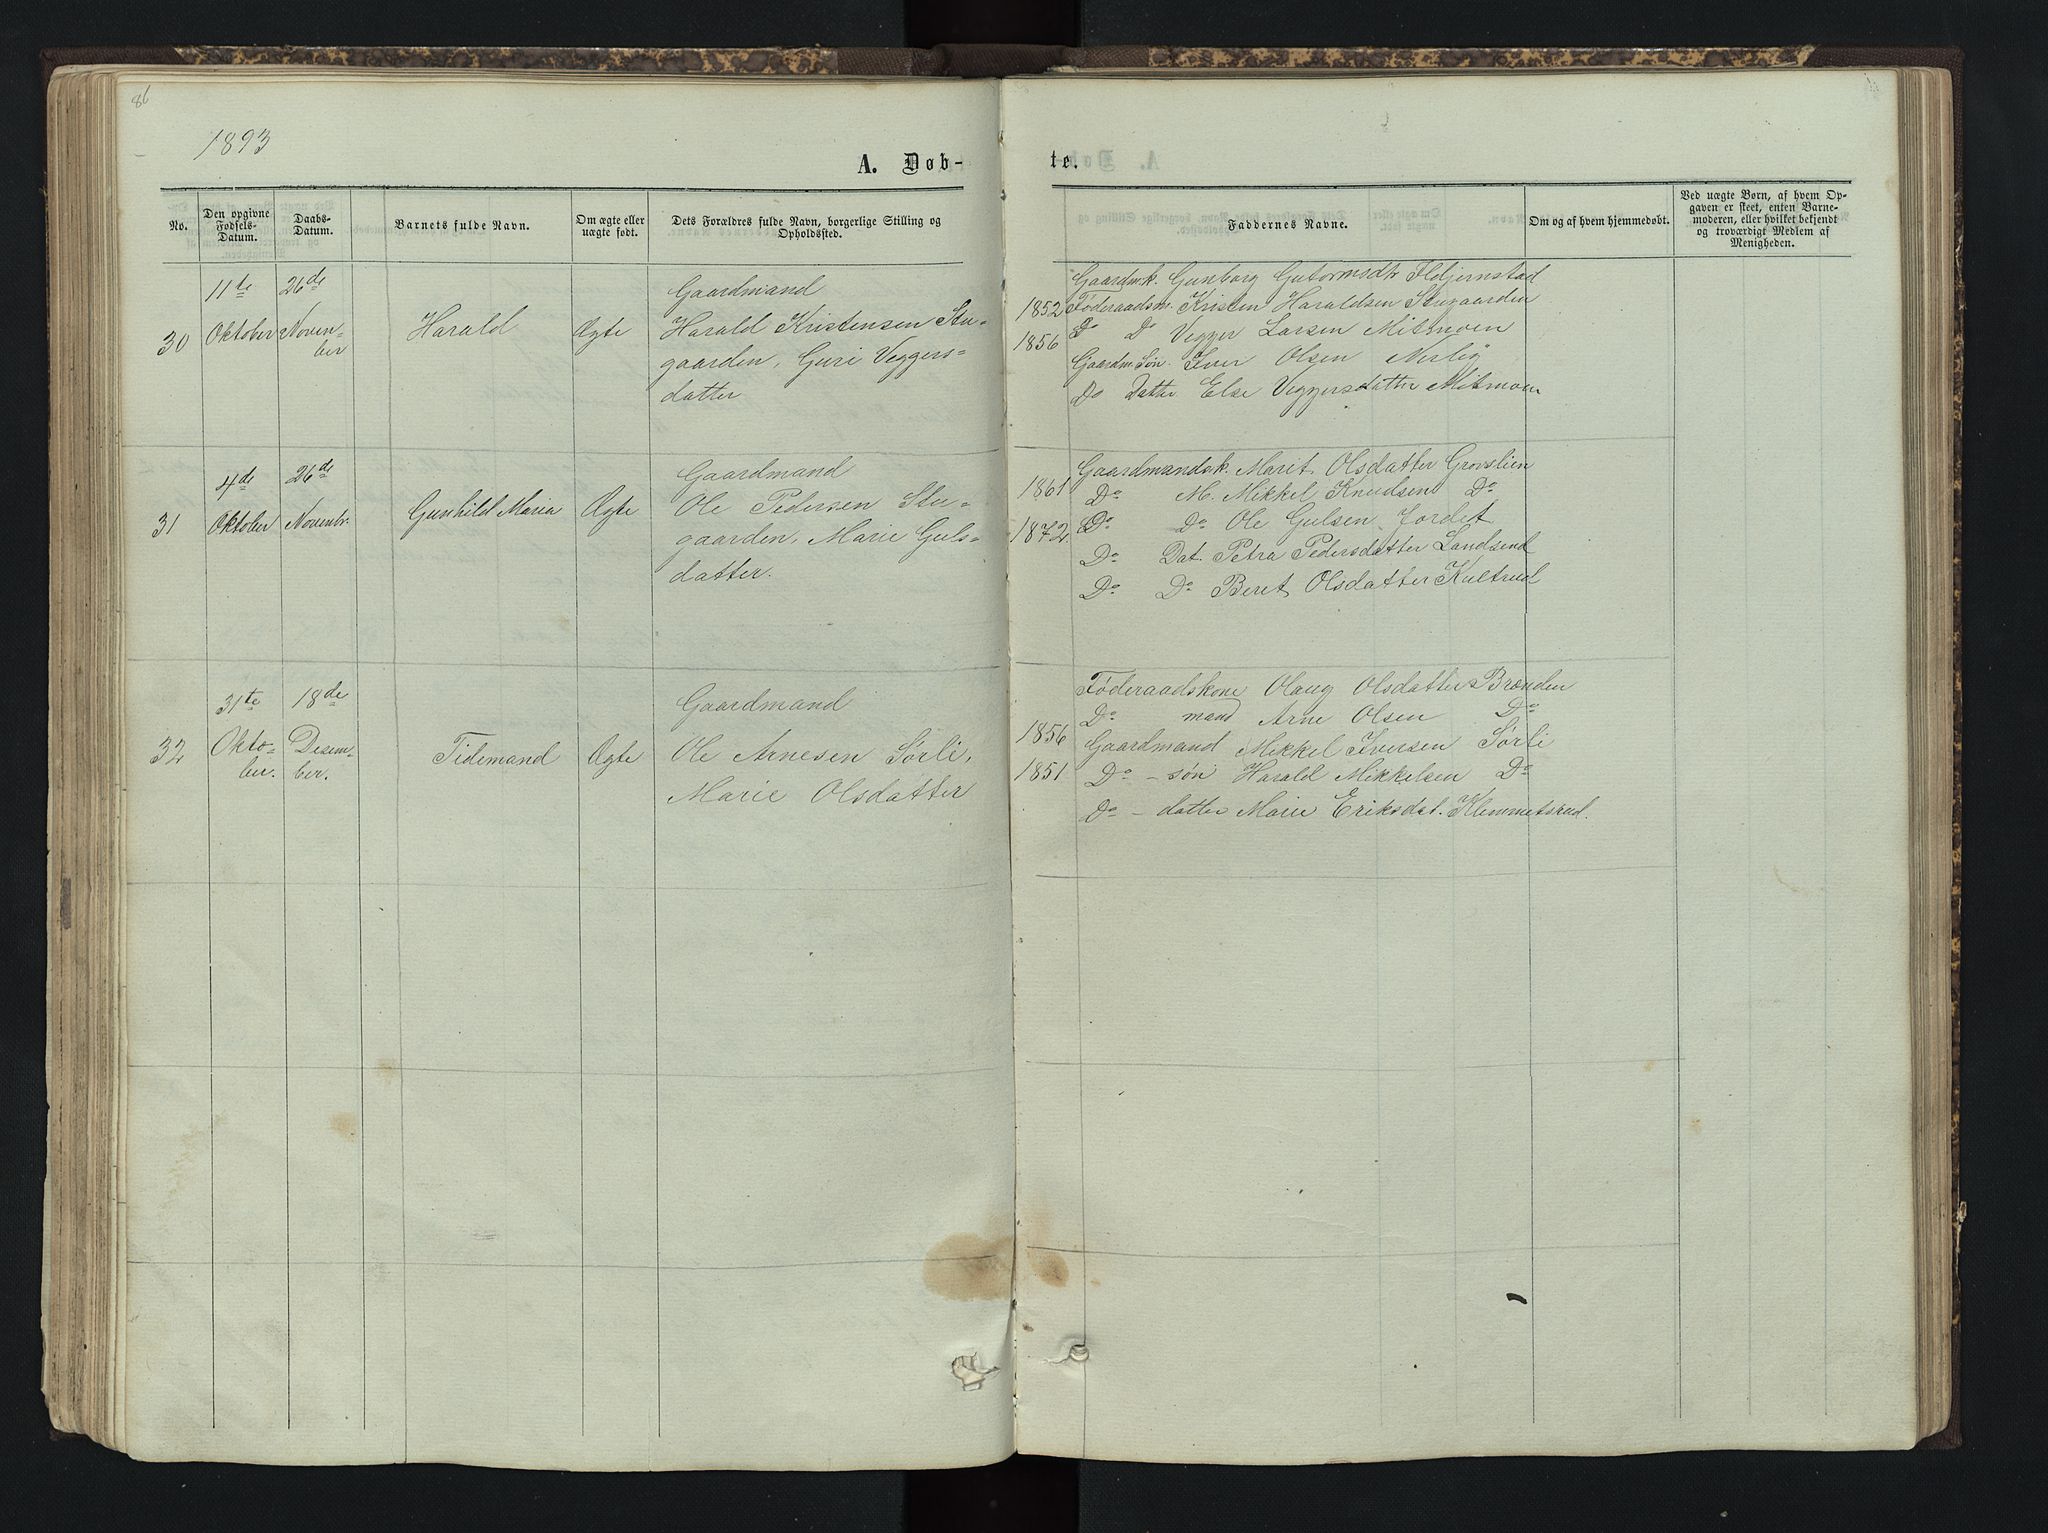 86
1893
A. Døb-
te.
No.
Den opgivne
Fødsels-
Datum.
Daabs-
Datum.
Barnets fulde Navn.
Om ægte eller
uægte født.
Dets Forældres fulde Navn, borgerlige Stilling og
Opholdssted.
Faddernes Navne.
Om og af hvem hjemmedøbt.
Ved uægte Børn, af hvem Op-
gaven er skeet, enten Barne-
moderen, eller hvilket bekjendt
og troværdigt Medlem af
Menigheden.
30
11te
Oktober
26de
Novem-
ber
Harald
Ægte
Gaardmand
Harald Kristensen Stu-
gaarden, Guri Veggers-
datter
1852
1856
Gaardmk. Gunborg Gutormsdtr
Føderaadsm. Kristen Haraldsen Stugaarden
Do Do Vegger Larsen Mitmoen
Gaardm. Søn. Iver Olsen Nerlig
Do Datter Else Veggersdatter Mitmoen
31
4de
Oktober
26de
Novembr.
Gunhild Maria
Ægte
Gaardmand
Ole Pedersen Stu-
gaarden, Marie Guls-
datter.
1861
1872
Gaardmandsk. Marit Olsdatter Grovslien
Do M. Mikkel Knudsen Do
Do Do Ole Gulsen Jordet
Do Dat. Petra Pedersdatter Landsend
Do Do Beret Olsdatter Kultrud
32
31te
Okto-
ber.
18de
Desem-
ber.
Tidemand
Ægte
Gaardmand
Ole Arnesen Sørli,
Marie Olsdatter
1856
1851
Føderaadskone Olaug Olsdatter Brænden
Do mand Arne Olsen Do
Gaardmand Mikkel Iversen Sørli
Do - søn Harald Mikkelsen Do
Do - datter Marie Eriksdat. Klemmetsrud.